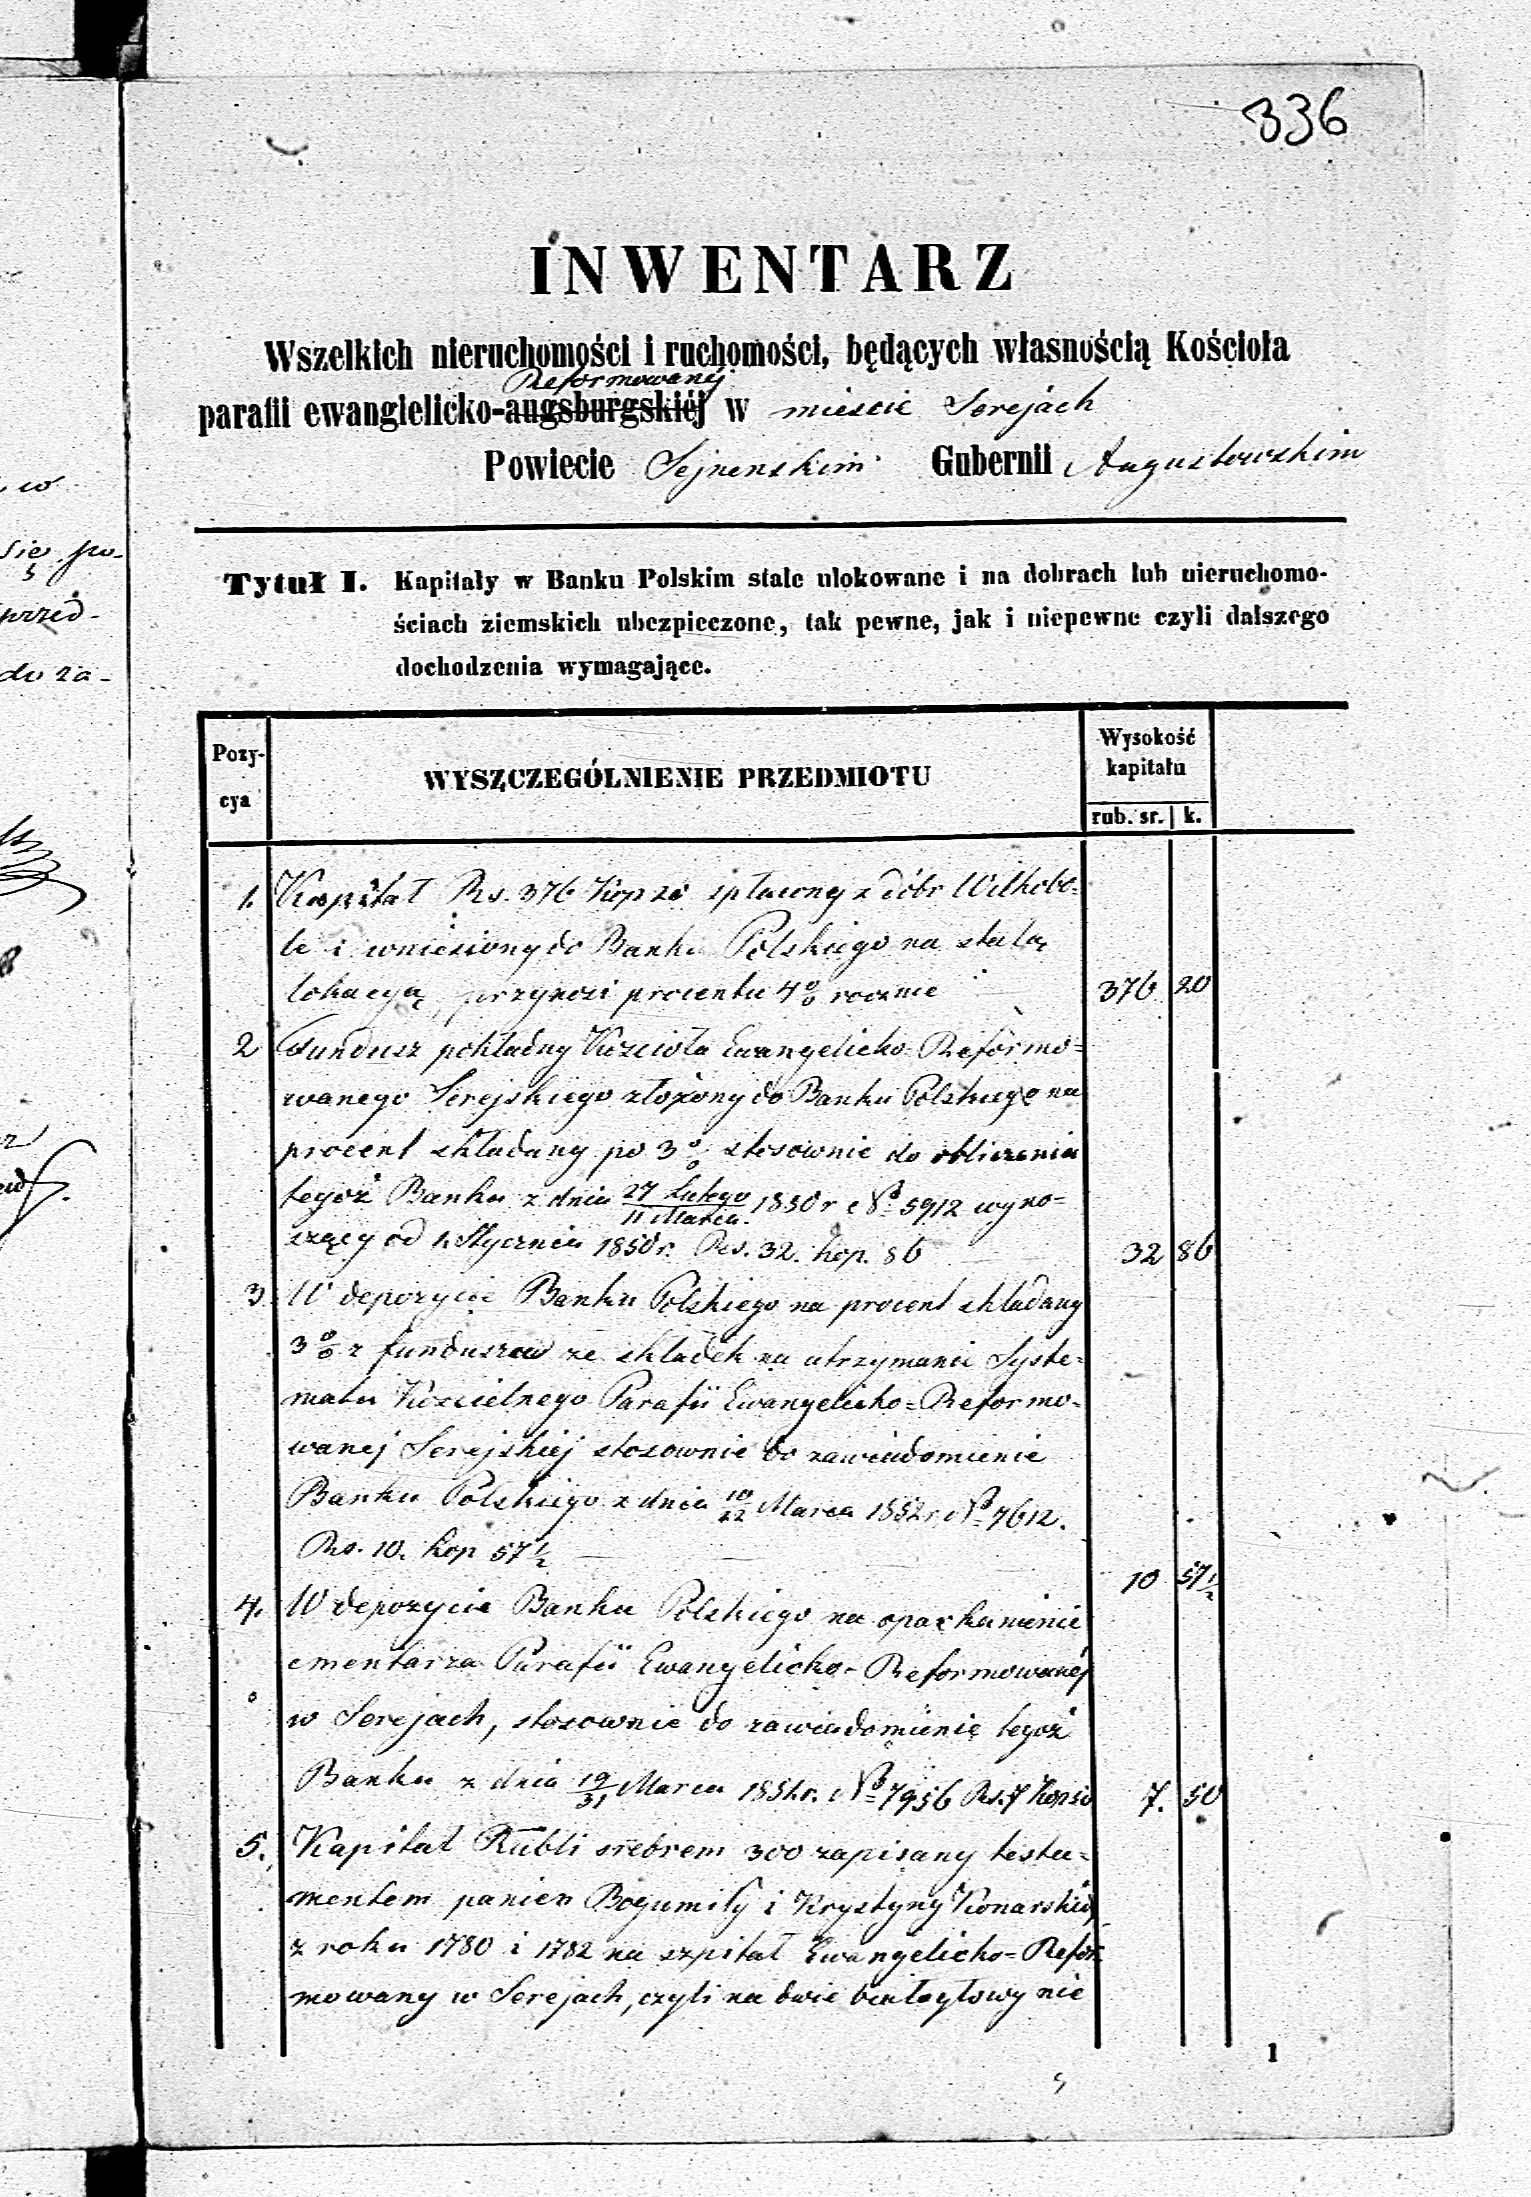 336
INWENTARZ
Wszelkich nieruchomości i ruchomości, będących własnością Kościoła
Reformowanéj
parafii ewangielicko-augsburgskiéj w mieście Serejach
Powiecie Sejnenskim Gubernii Augustowskim
Tytuł I. Kapitały w Banku Polskim stale ulokowane i na dobrach lub nieruchomo-
ściach ziemskich ubezpieczone, tak pewne, jak i niepewne czyli dalszego
dochodzenia wymagające.
Pozy-
cya
WYSZCZEGÓLNIENIE PRZEDMIOTU
Wysokość
kapitału
rub. sr. k.
1. Kapitał Rs. 376 Kop 20 spłacony z dóbr Wilkobo-
le i wniesiony do Banku Polskiego na stałą
lokacyą, przynosi procentu 4% rocznie 376 20
2 Fundusz pokładny Kościoła Ewangelicko-Reformo=
wanego Serejskiego złożony do Banku Polskiego na
procent składany po 3% stosownie do obliczenia
tegoż Banku z dnia 27 Lutego/11 Marca 1850 r № 5912 wyno=
szący od 1. Stycznia 1850 r. Rs. 32. kop. 86 32 86
3 W depozycie Banku Polskiego na procent składany
3% z funduszów ze składek na utrzymanie Syste=
matu Kościelnego Parafii Ewangelicko=Reformo-
wanej Serejskiéj stosownie do zawiadomienie
Banku Polskiego z dnia 10/22 Marca 1852 r. № 7612.
Rs. 10. kop 57½ 10 57½
4. W depozycie Banku Polskiego na oparkanienie
cmentarza Parafii Ewangelicko-Reformowanéj
w Serejach, stosownie do zawiadomienie tegoż
Banku z dnia 19/31 Marca r. № 7956 Rs. 7 Kop 50 7. 50
5. Kapitał Rubli srebrem 300 zapisany testa=
mentem panien Bogumiły i Krystyny Konarskich
z roku 1780 i 1782 na szpital Ewangelicko=Refor=
mowany w Serejach, czyli na dwie nie
1